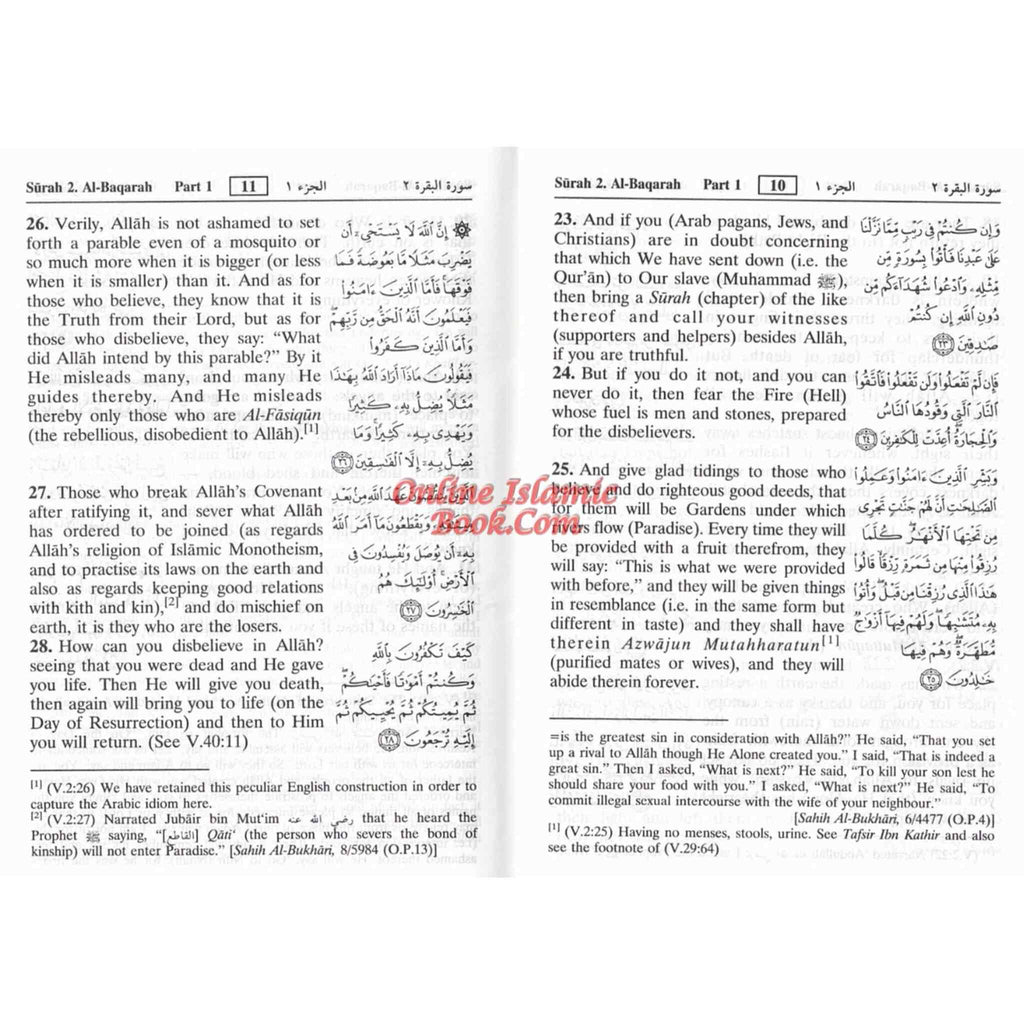 Sūrah 2. Al-Baqarah Part 1 10 الجزء ١ سورة البقرة ٢
23. And if you (Arab pagans, Jews, and
Christians) are in doubt concerning
that which We have sent down (i.e. the
Qur’ān) to Our slave (Muhammad ﷺ),
then bring a Sūrah (chapter) of the like
thereof and call your witnesses
(supporters and helpers) besides Allāh,
if you are truthful.
24. But if you do it not, and you can
never do it, then fear the Fire (Hell)
whose fuel is men and stones, prepared
for the disbelievers.
25. And give glad tidings to those who
believe and do righteous good deeds, that
for them will be Gardens under which
rivers flow (Paradise). Every time they will
be provided with a fruit therefrom, they
will say: “This is what we were provided
with before,” and they will be given things
in resemblance (i.e. in the same form but
different in taste) and they shall have
therein Azwājun Mutahharatun[1]
(purified mates or wives), and they will
abide therein forever.
وَإِن كُنتُمْ فِى رَيْبٍ مِّمَّا نَزَّلْنَا
عَلَىٰ عَبْدِنَا فَأْتُوا۟ بِسُورَةٍ مِّن
مِّثْلِهِۦ وَٱدْعُوا۟ شُهَدَآءَكُم مِّن
دُونِ ٱللَّهِ إِن كُنتُمْ
صَـٰدِقِينَ ٢٣
فَإِن لَّمْ تَفْعَلُوا۟ وَلَن تَفْعَلُوا۟ فَٱتَّقُوا۟
ٱلنَّارَ ٱلَّتِى وَقُودُهَا ٱلنَّاسُ
وَٱلْحِجَارَةُ أُعِدَّتْ لِلْكَـٰفِرِينَ ٢٤
وَبَشِّرِ ٱلَّذِينَ ءَامَنُوا۟ وَعَمِلُوا۟
ٱلصَّـٰلِحَـٰتِ أَنَّ لَهُمْ جَنَّـٰتٍ تَجْرِى
مِن تَحْتِهَا ٱلْأَنْهَـٰرُ كُلَّمَا
رُزِقُوا۟ مِنْهَا مِن ثَمَرَةٍ رِّزْقًا قَالُوا۟
هَـٰذَا ٱلَّذِى رُزِقْنَا مِن قَبْلُ وَأُتُوا۟
بِهِۦ مُتَشَـٰبِهًا وَلَهُمْ فِيهَآ أَزْوَٰجٌ
مُّطَهَّرَةٌ وَهُمْ فِيهَا
خَـٰلِدُونَ ٢٥
=is the greatest sin in consideration with Allāh?” He said, “That you set
up a rival to Allāh though He Alone created you.” I said, “That is indeed a
great sin.” Then I asked, “What is next?” He said, “To kill your son lest he
should share your food with you.” I asked, “What is next?” He said, “To
commit illegal sexual intercourse with the wife of your neighbour.”
[Sahih Al-Bukhāri, 6/4477 (O.P.4)]
[1] (V.2:25) Having no menses, stools, urine. See Tafsir Ibn Kathir and also
see the footnote of (V.29:64)
Sūrah 2. Al-Baqarah Part 1 11 الجزء ١ سورة البقرة ٢
26. Verily, Allāh is not ashamed to set
forth a parable even of a mosquito or
so much more when it is bigger (or less
when it is smaller) than it. And as for
those who believe, they know that it is
the Truth from their Lord, but as for
those who disbelieve, they say: “What
did Allāh intend by this parable?” By it
He misleads many, and many He
guides thereby. And He misleads
thereby only those who are Al-Fāsiqūn
(the rebellious, disobedient to Allāh).[1]
27. Those who break Allāh’s Covenant
after ratifying it, and sever what Allāh
has ordered to be joined (as regards
Allāh’s religion of Islāmic Monotheism,
and to practise its laws on the earth and
also as regards keeping good relations
with kith and kin),[2] and do mischief on
earth, it is they who are the losers.
28. How can you disbelieve in Allāh?
seeing that you were dead and He gave
you life. Then He will give you death,
then again will bring you to life (on the
Day of Resurrection) and then to Him
you will return. (See V.40:11)
۞ إِنَّ ٱللَّهَ لَا يَسْتَحْىِۦٓ أَن
يَضْرِبَ مَثَلًا مَّا بَعُوضَةً فَمَا
فَوْقَهَا فَأَمَّا ٱلَّذِينَ ءَامَنُوا۟
فَيَعْلَمُونَ أَنَّهُ ٱلْحَقُّ مِن رَّبِّهِمْ
وَأَمَّا ٱلَّذِينَ كَفَرُوا۟
فَيَقُولُونَ مَاذَآ أَرَادَ ٱللَّهُ بِهَـٰذَا
مَثَلًا يُضِلُّ بِهِۦ كَثِيرًا
وَيَهْدِى بِهِۦ كَثِيرًا وَمَا
يُضِلُّ بِهِۦٓ إِلَّا ٱلْفَـٰسِقِينَ ٢٦
ٱلَّذِينَ يَنقُضُونَ عَهْدَ ٱللَّهِ مِنۢ بَعْدِ
مِيثَـٰقِهِۦ وَيَقْطَعُونَ مَآ أَمَرَ ٱللَّهُ
بِهِۦٓ أَن يُوصَلَ وَيُفْسِدُونَ فِى
ٱلْأَرْضِ أُو۟لَـٰٓئِكَ هُمُ
ٱلْخَـٰسِرُونَ ٢٧
كَيْفَ تَكْفُرُونَ بِٱللَّهِ
وَكُنتُمْ أَمْوَٰتًا فَأَحْيَـٰكُمْ
ثُمَّ يُمِيتُكُمْ ثُمَّ يُحْيِيكُمْ ثُمَّ
إِلَيْهِ تُرْجَعُونَ ٢٨
[1] (V.2:26) We have retained this peculiar English construction in order to
capture the Arabic idiom here.
[2] (V.2:27) Narrated Jubāir bin Mut‘im رضي الله عنه that he heard the
Prophet ﷺ saying, “[القاطع] Qāti‘ (the person who severs the bond of
kinship) will not enter Paradise.” [Sahih Al-Bukhāri, 8/5984 (O.P.13)]
Online Islamic
Book.Com